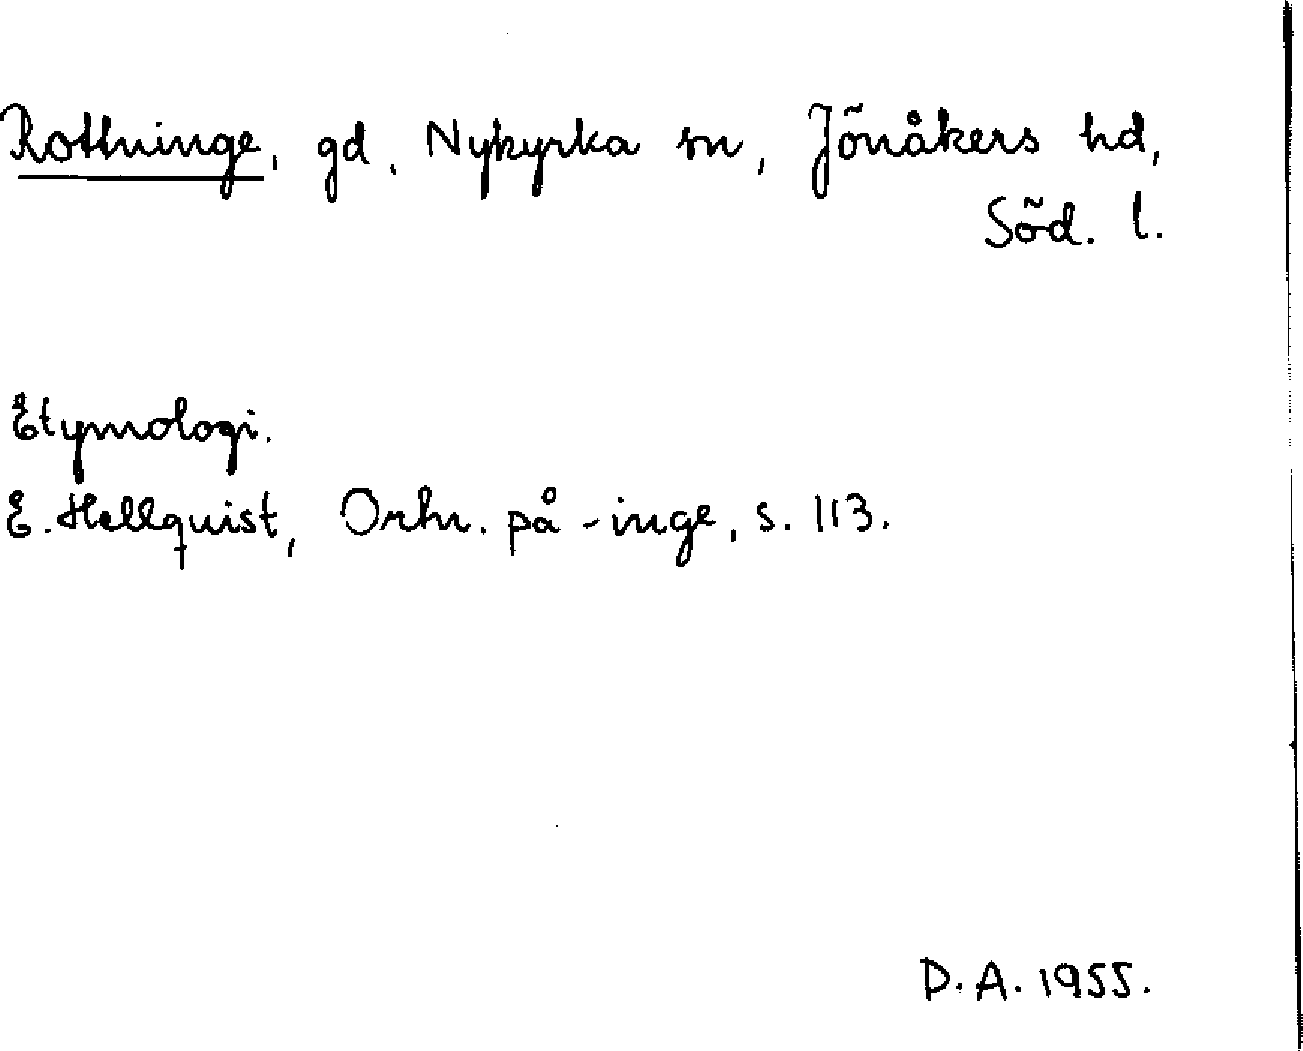 Rottninge, gd, Nykyrka sn, Jönåkers hd,
Söd. l.
Etymologi.
E. Hellquist, Ortn. på -inge, s. 113.
D. A. 1955.